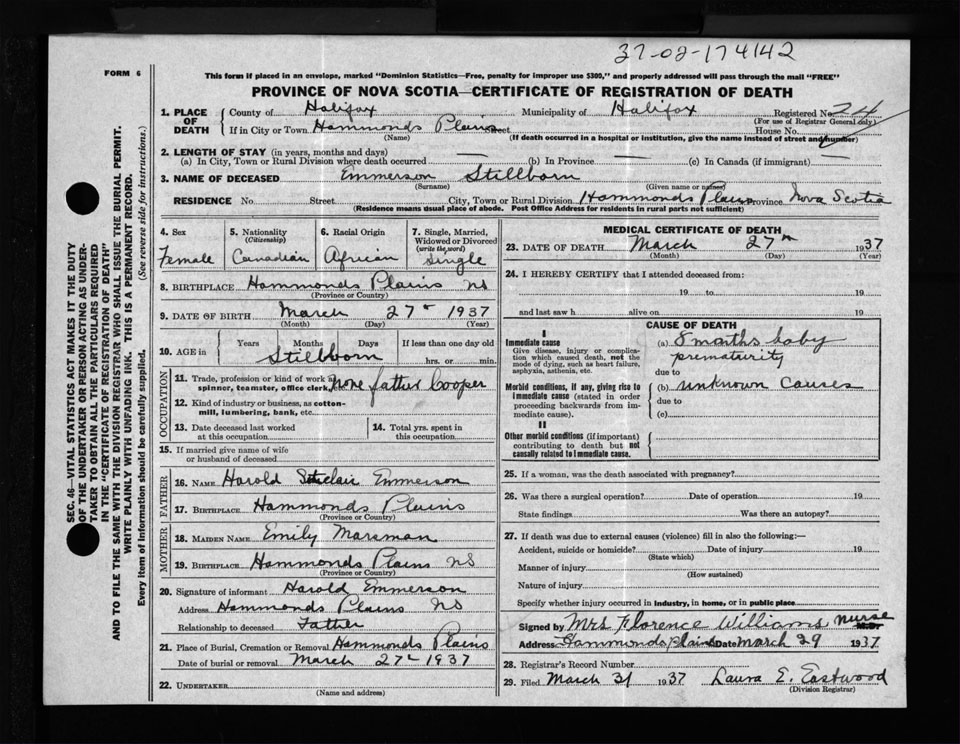 37-02-174142
FORM 6
This form if placed in an envelope, marked "Dominion Statistics—Free, penalty for improper use $300," and properly addressed will pass through the mail "FREE"
PROVINCE OF NOVA SCOTIA—CERTIFICATE OF REGISTRATION OF DEATH
1. PLACE OF DEATH County of Halifax Municipality of Halifax Registered No. 24
(For use of Registrar General only)
If in City or Town Hammonds Plains Street House No.
(Name) (If death occurred in a hospital or institution, give the name instead of street and number)
2. LENGTH OF STAY (in years, months and days)
(a) In City, Town or Rural Division where death occurred — (b) In Province — (c) In Canada (if immigrant) —
3. NAME OF DECEASED Emmerson Stillborn
(Surname) (Given name or names)
RESIDENCE No. Street City, Town or Rural Division Hammonds Plains Province Nova Scotia
(Residence means usual place of abode. Post Office Address for residents in rural parts not sufficient)
4. Sex Female
5. Nationality (Citizenship) Canadian
6. Racial Origin African
7. Single, Married, Widowed or Divorced (write the word) Single
8. BIRTHPLACE Hammonds Plains NS
(Province or Country)
9. DATE OF BIRTH March 27 1937
(Month) (Day) (Year)
10. AGE in Years Months Days If less than one day old
Stillborn hrs. or min.
OCCUPATION
11. Trade, profession or kind of work as spinner, teamster, office clerk, None father Cooper
12. Kind of industry or business, as cotton-mill, lumbering, bank, etc.
13. Date deceased last worked at this occupation
14. Total yrs. spent in this occupation
15. If married give name of wife or husband of deceased
FATHER
16. NAME Harold Sinclair Emmerson
17. BIRTHPLACE Hammonds Plains
(Province or Country)
MOTHER
18. MAIDEN NAME Emily Marsman
19. BIRTHPLACE Hammonds Plains NS
(Province or Country)
20. Signature of informant Harold Emmerson
Address Hammonds Plains NS
Relationship to deceased Father
21. Place of Burial, Cremation or Removal Hammonds Plains
Date of burial or removal March 27 1937
22. UNDERTAKER
(Name and address)
MEDICAL CERTIFICATE OF DEATH
23. DATE OF DEATH March 27th 1937
(Month) (Day) (Year)
24. I HEREBY CERTIFY that I attended deceased from:
19 to 19
and last saw h alive on 19
CAUSE OF DEATH
I
Immediate cause
Give disease, injury or complication which caused death, not the mode of dying, such as heart failure, asphyxia, asthenia, etc.
(a) 8 months baby
prematurity
due to
Morbid conditions, if any, giving rise to immediate cause (stated in order proceeding backwards from immediate cause).
(b) unknown causes
due to
(c)
II
Other morbid conditions (if important) contributing to death but not causally related to immediate cause.
25. If a woman, was the death associated with pregnancy?
26. Was there a surgical operation? Date of operation 19
State findings Was there an autopsy?
27. If death was due to external causes (violence) fill in also the following:—
Accident, suicide or homicide? Date of injury 19
(State which)
Manner of injury
(How sustained)
Nature of injury
Specify whether injury occurred in industry, in home, or in public place
Signed by Mrs Florence Williams, nurse M.D.
Address Hammonds Plains Date March 29 1937
28. Registrar's Record Number
29. Filed March 31 1937 Laura E. Eastwood
(Division Registrar)
SEC. 46—VITAL STATISTICS ACT MAKES IT THE DUTY
OF THE UNDERTAKER OR PERSON ACTING AS UNDER-
TAKER TO OBTAIN ALL THE PARTICULARS REQUIRED
IN THE "CERTIFICATE OF REGISTRATION OF DEATH"
AND TO FILE THE SAME WITH THE DIVISION REGISTRAR WHO SHALL ISSUE THE BURIAL PERMIT.
WRITE PLAINLY WITH UNFADING INK. THIS IS A PERMANENT RECORD.
Every item of Information should be carefully supplied. (See reverse side for instructions.)